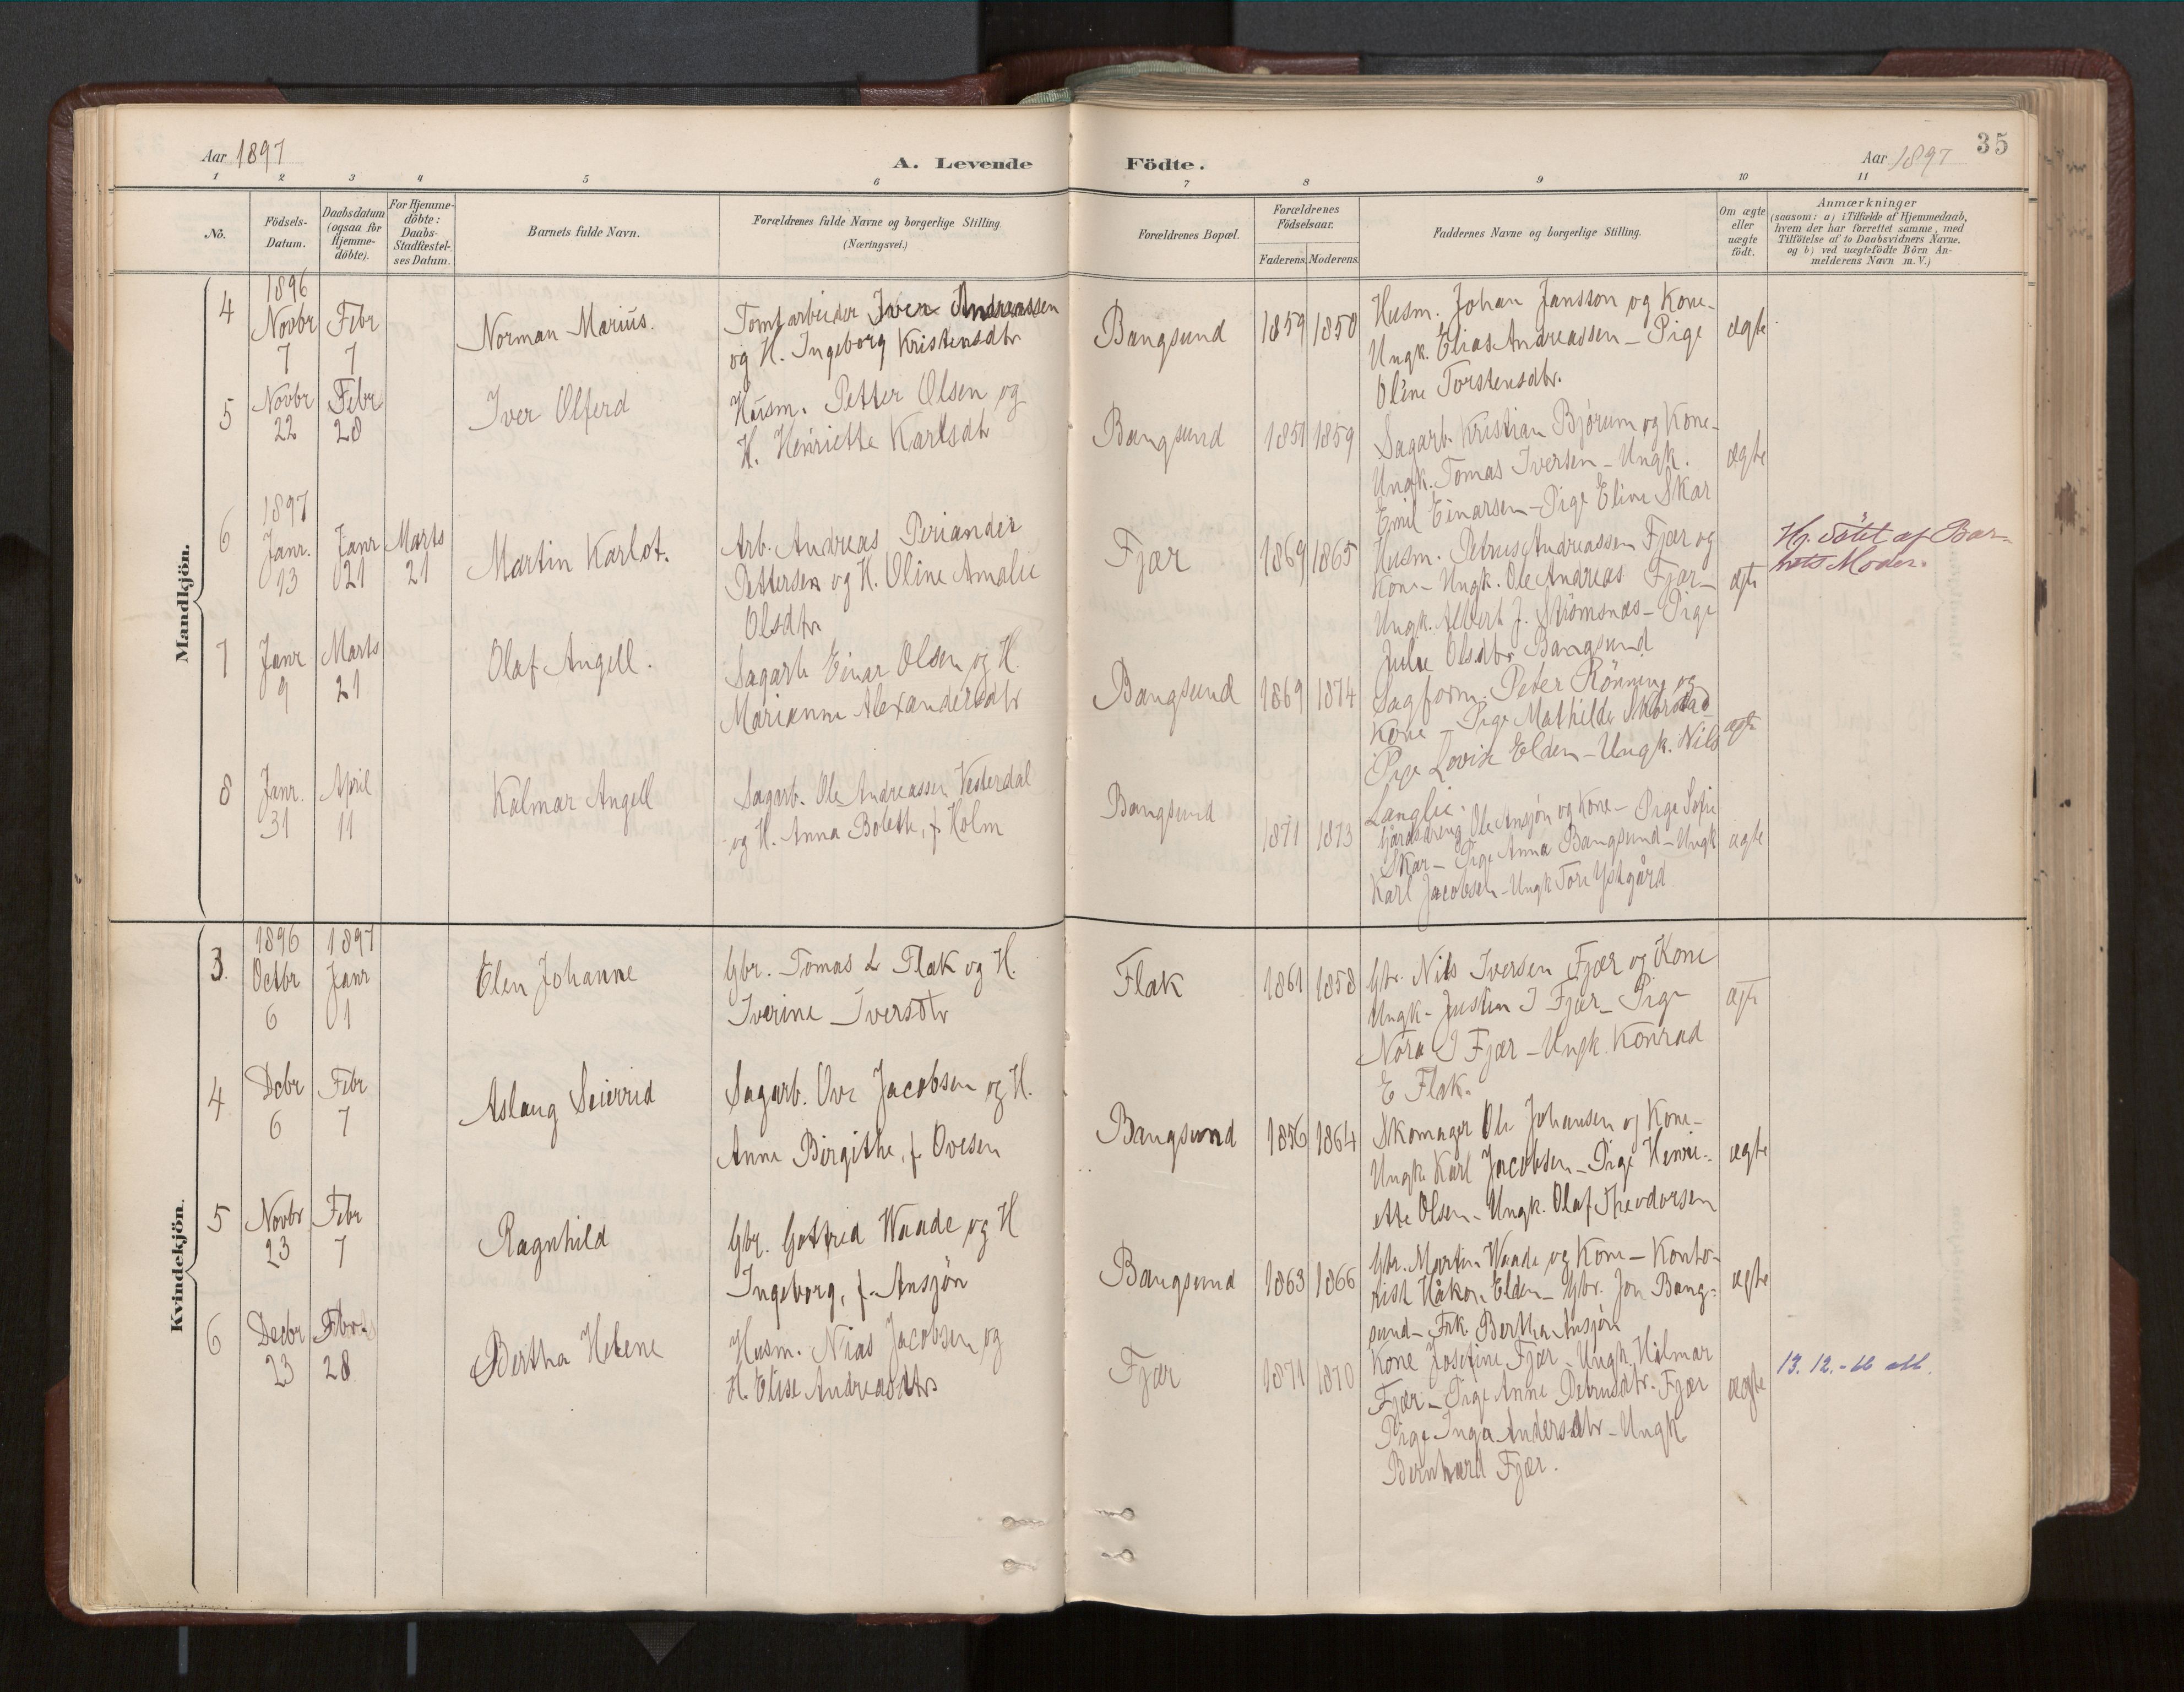 Aar 1897
A. Levende
Födte.
Aar 1897
35
1 2 3 4 5 6 7 8 9 10 11
No.
Födsels-
Datum.
Daabsdatum
(ogsaa for
Hjemme-
döbte).
For Hjemme-
döbte:
Daabs-
Stadfæstel-
ses Datum.
Barnets fulde Navn.
Forældrenes fulde Navne og borgerlige Stilling.
(Næringsvei.)
Forældrenes Bopæl.
Forældrenes
Födselsaar.
Faderens. Moderens.
Faddernes Navne og borgerlige Stilling.
Om ægte
eller
uægte
födt.
Anmærkninger
(saasom: a) i Tilfælde af Hjemmedaab,
hvem der har forrettet samme, med
Tilföielse af to Daabsvidners Navne.
og b) ved uægtefödte Börn An-
melderens Navn m. V.)
Mandkjön.
4
1896
Novbr
7
Febr
7
Norman Marius.
Tomtarbeider Iver Andreassen
og H. Ingeborg Kristensdtr
Bangsund
1859
1850
Husm. Johan Jansson og Kone-
Ungk. Elias Andreassen - Pige
Oline Torstensdtr.
ægte
5
Novbr
22
Febr
28
Iver Olferd
Husm. Petter Olsen og
H. Henriette Karlsdtr
Bangsund
1851
1859
Sagarb. Kristian Bjørum og Kone-
Ungk. Tomas Iversen - Ungk.
Emil Einarsen - Pige Eline Skar
ægte
6
1897
Janr.
13
Janr
21
Marts
21
Martin Karlot.
Arb. Andreas Periander
Pettersen og H. Oline Amalie
Olsdtr
Fjær
1869
1865
Husm. Petrus Andreassen Fjær og
Kone - Ungk. Ole Andreas Fjær -
Ungk. Albert J. Strömsnæs - Pige
Julie Olsdtr Bangsund
ægte
Hj. döbt af Bar-
nets Moder.
7
Janr
9
Marts
21
Olaf Angell.
Sagarb Einar Olsen og H.
Marianne Alexandersdtr
Bangsund
1869
1874
Sagform. Peter Rönning og
Kone - Pige Mathilde
Pige Lovise Elden - Ungk. Nils
Langlie.
ægte
8
Janr.
31
April
11
Kalmar Angell
Sagarb. Ole Andreassen Vesterdal
og H. Anna Bolette, f Holm
Bangsund
1871
1873
Gårdsdreng Ole Ansjön og Kone - Pige Sofie
Skar - Pige Anna Bangsund - Ungk
Karl Jacobsen - Ungk Tore Ystgård
ægte
Kvindekjön.
3.
1896
Octbr
6
1897
Janr
1
Elen Johanne
Gbr. Tomas L Flak og H.
Iverine Iversdtr
Flak
1861
1858
Gbr. Nils Iversen Fjær og Kone
Ungk - Justin I Fjær - Pige
Nora I Fjær - Ungk. Konrad
E Flak.
ægte
4
Debr
6
Febr
7
Aslaug Seierrid
Sagarb. Ove Jacobsen og H.
Anne Birgithe, f. Ovesen
Bangsund
1856
1864
Skomager Ole Johansen og Kone-
Ungk. Karl Jacobsen - Pige Henri-
ette Olsen - Ungk. Olaf Theodorsen
ægte
5
Novbr
23
Febr
7
Ragnhild
Gbr. Gotfred Waade og H
Ingeborg, f. Ansjön
Bangsund
1863
1866
Gbr. Martin Waade og Kone - Konto-
rist Håkon Elden - Gbr. Jon Bang-
sund - Frk. Bertha Ansjön
ægte
6
Decbr
23
Febr.
28
Bertha Helene
Husm. Nias Jacobsen og
H. Elise Andreasdtr
Fjær
1871
1870
Kone Josefine Fjær - Ungk. Hilmar
Fjær - Pige Anne Petrusdtr. Fjær
Pige Inga Andersdtr - Ungk
Bernhard Fjær.
ægte
13. 12. - 66 att.